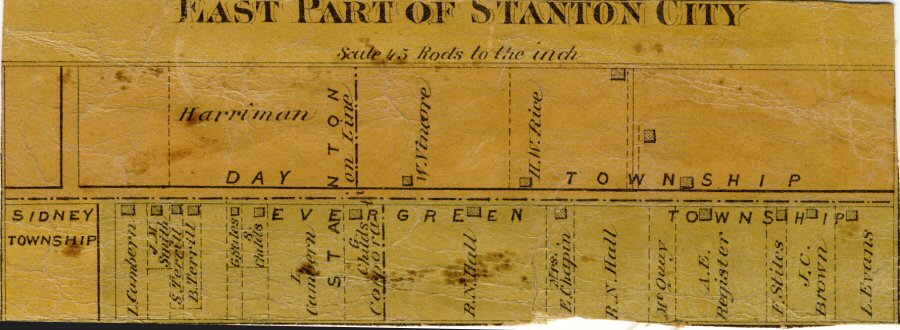 EAST PART OF STANTON CITY
Scale 45 Rods to the inch
Harriman
W. Vincore
H.W. Rice
DAY TOWNSHIP
STANTON
Corporation Line
SIDNEY
TOWNSHIP
EVERGREEN TOWNSHIP
I. Cambern
J.M. Smith
S. Terrill
B. Terrill
G. Stiles
S. Childs
L. Cambern
G. Childs
R.N. Hall
Mrs. E. Chapin
R.N. Hall
McQuay
A.E. Register
F. Stiles
J.C. Brown
L. Evans